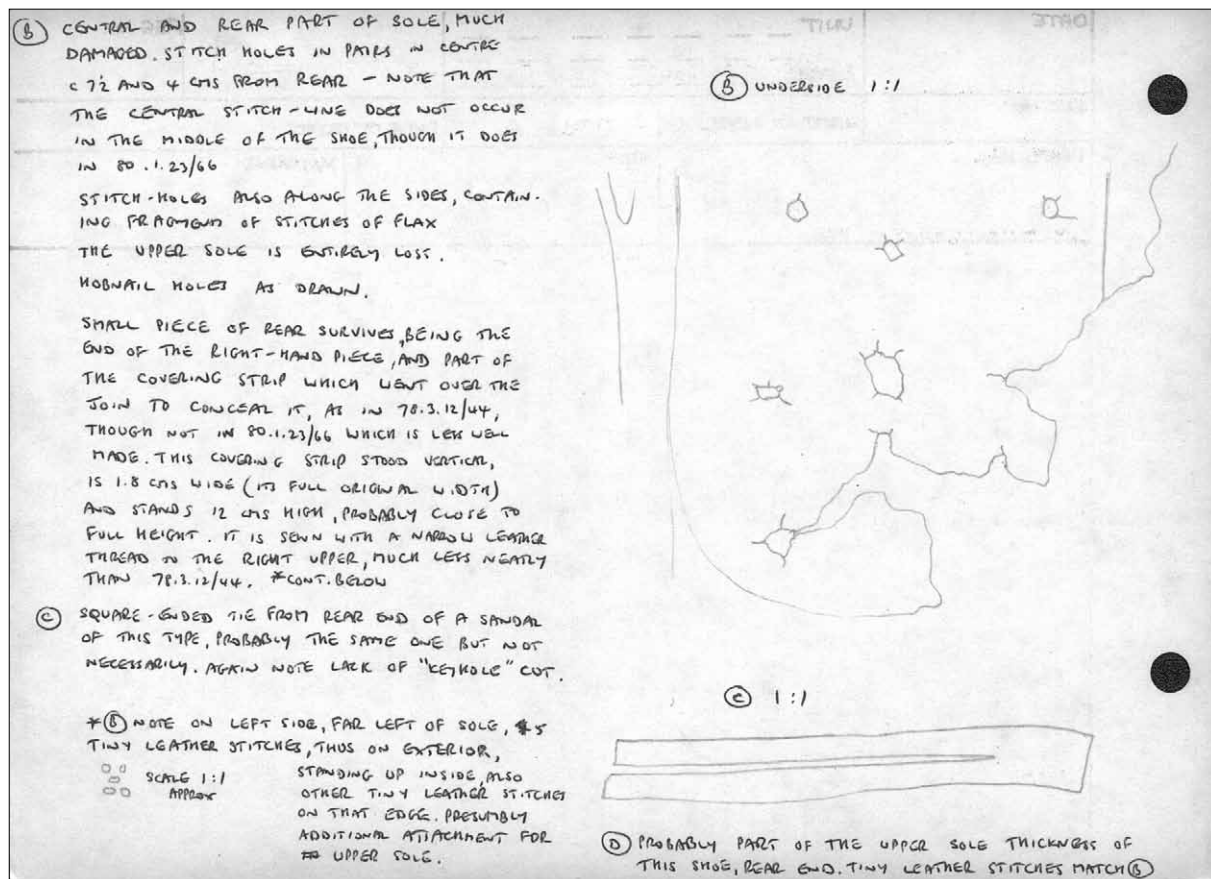 Ⓑ CENTRAL AND REAR PART OF SOLE, MUCH
DAMAGED. STITCH HOLES IN PAIRS IN CENTRE
c 7½ AND 4 CMS FROM REAR – NOTE THAT
THE CENTRAL STITCH-LINE DOES NOT OCCUR
IN THE MIDDLE OF THE SHOE, THOUGH IT DOES
IN 80.1.23/66
STITCH-HOLES ALSO ALONG THE SIDES, CONTAIN-
ING FRAGMENTS OF STITCHES OF FLAX
THE UPPER SOLE IS ENTIRELY LOST.
HOBNAIL HOLES AS DRAWN.
SMALL PIECE OF REAR SURVIVES, BEING THE
END OF THE RIGHT-HAND PIECE, AND PART OF
THE COVERING STRIP WHICH WENT OVER THE
JOIN TO CONCEAL IT, AS IN 78.3.12/44,
THOUGH NOT IN 80.1.23/66 WHICH IS LESS WELL
MADE. THIS COVERING STRIP STOOD VERTICAL,
IS 1.8 CMS WIDE (ITS FULL ORIGINAL WIDTH)
AND STANDS 12 CMS HIGH, PROBABLY CLOSE TO
FULL HEIGHT. IT IS SEWN WITH A NARROW LEATHER
THREAD TO THE RIGHT UPPER, MUCH LESS NEATLY
THAN 78.3.12/44. *CONT. BELOW
Ⓒ SQUARE-ENDED TIE FROM REAR END OF A SANDAL
OF THIS TYPE, PROBABLY THE SAME ONE BUT NOT
NECESSARILY. AGAIN NOTE LACK OF "KEYHOLE" CUT.
*Ⓑ NOTE ON LEFT SIDE, FAR LEFT OF SOLE, 5
TINY LEATHER STITCHES, THUS ON EXTERIOR,
SCALE 1:1
APPROX
STANDING UP INSIDE, ALSO
OTHER TINY LEATHER STITCHES
ON THAT EDGE. PRESUMBLY
ADDITIONAL ATTACHMENT FOR
UPPER SOLE.
Ⓑ UNDERSIDE 1:1
Ⓒ 1:1
Ⓓ PROBABLY PART OF THE UPPER SOLE THICKNESS OF
THIS SHOE, REAR END. TINY LEATHER STITCHES MATCH Ⓑ
DATE UNIT